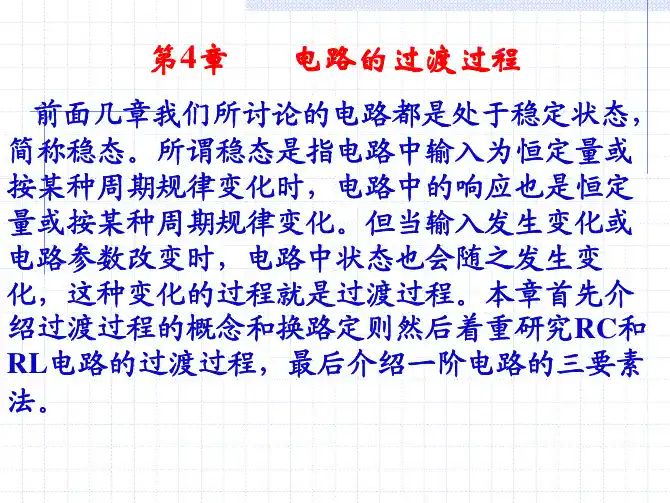 第4章 电路的过渡过程
前面几章我们所讨论的电路都是处于稳定状态，
简称稳态。所谓稳态是指电路中输入为恒定量或
按某种周期规律变化时，电路中的响应也是恒定
量或按某种周期规律变化。但当输入发生变化或
电路参数改变时，电路中状态也会随之发生变
化，这种变化的过程就是过渡过程。本章首先介
绍过渡过程的概念和换路定则然后着重研究RC和
RL电路的过渡过程，最后介绍一阶电路的三要素
法。